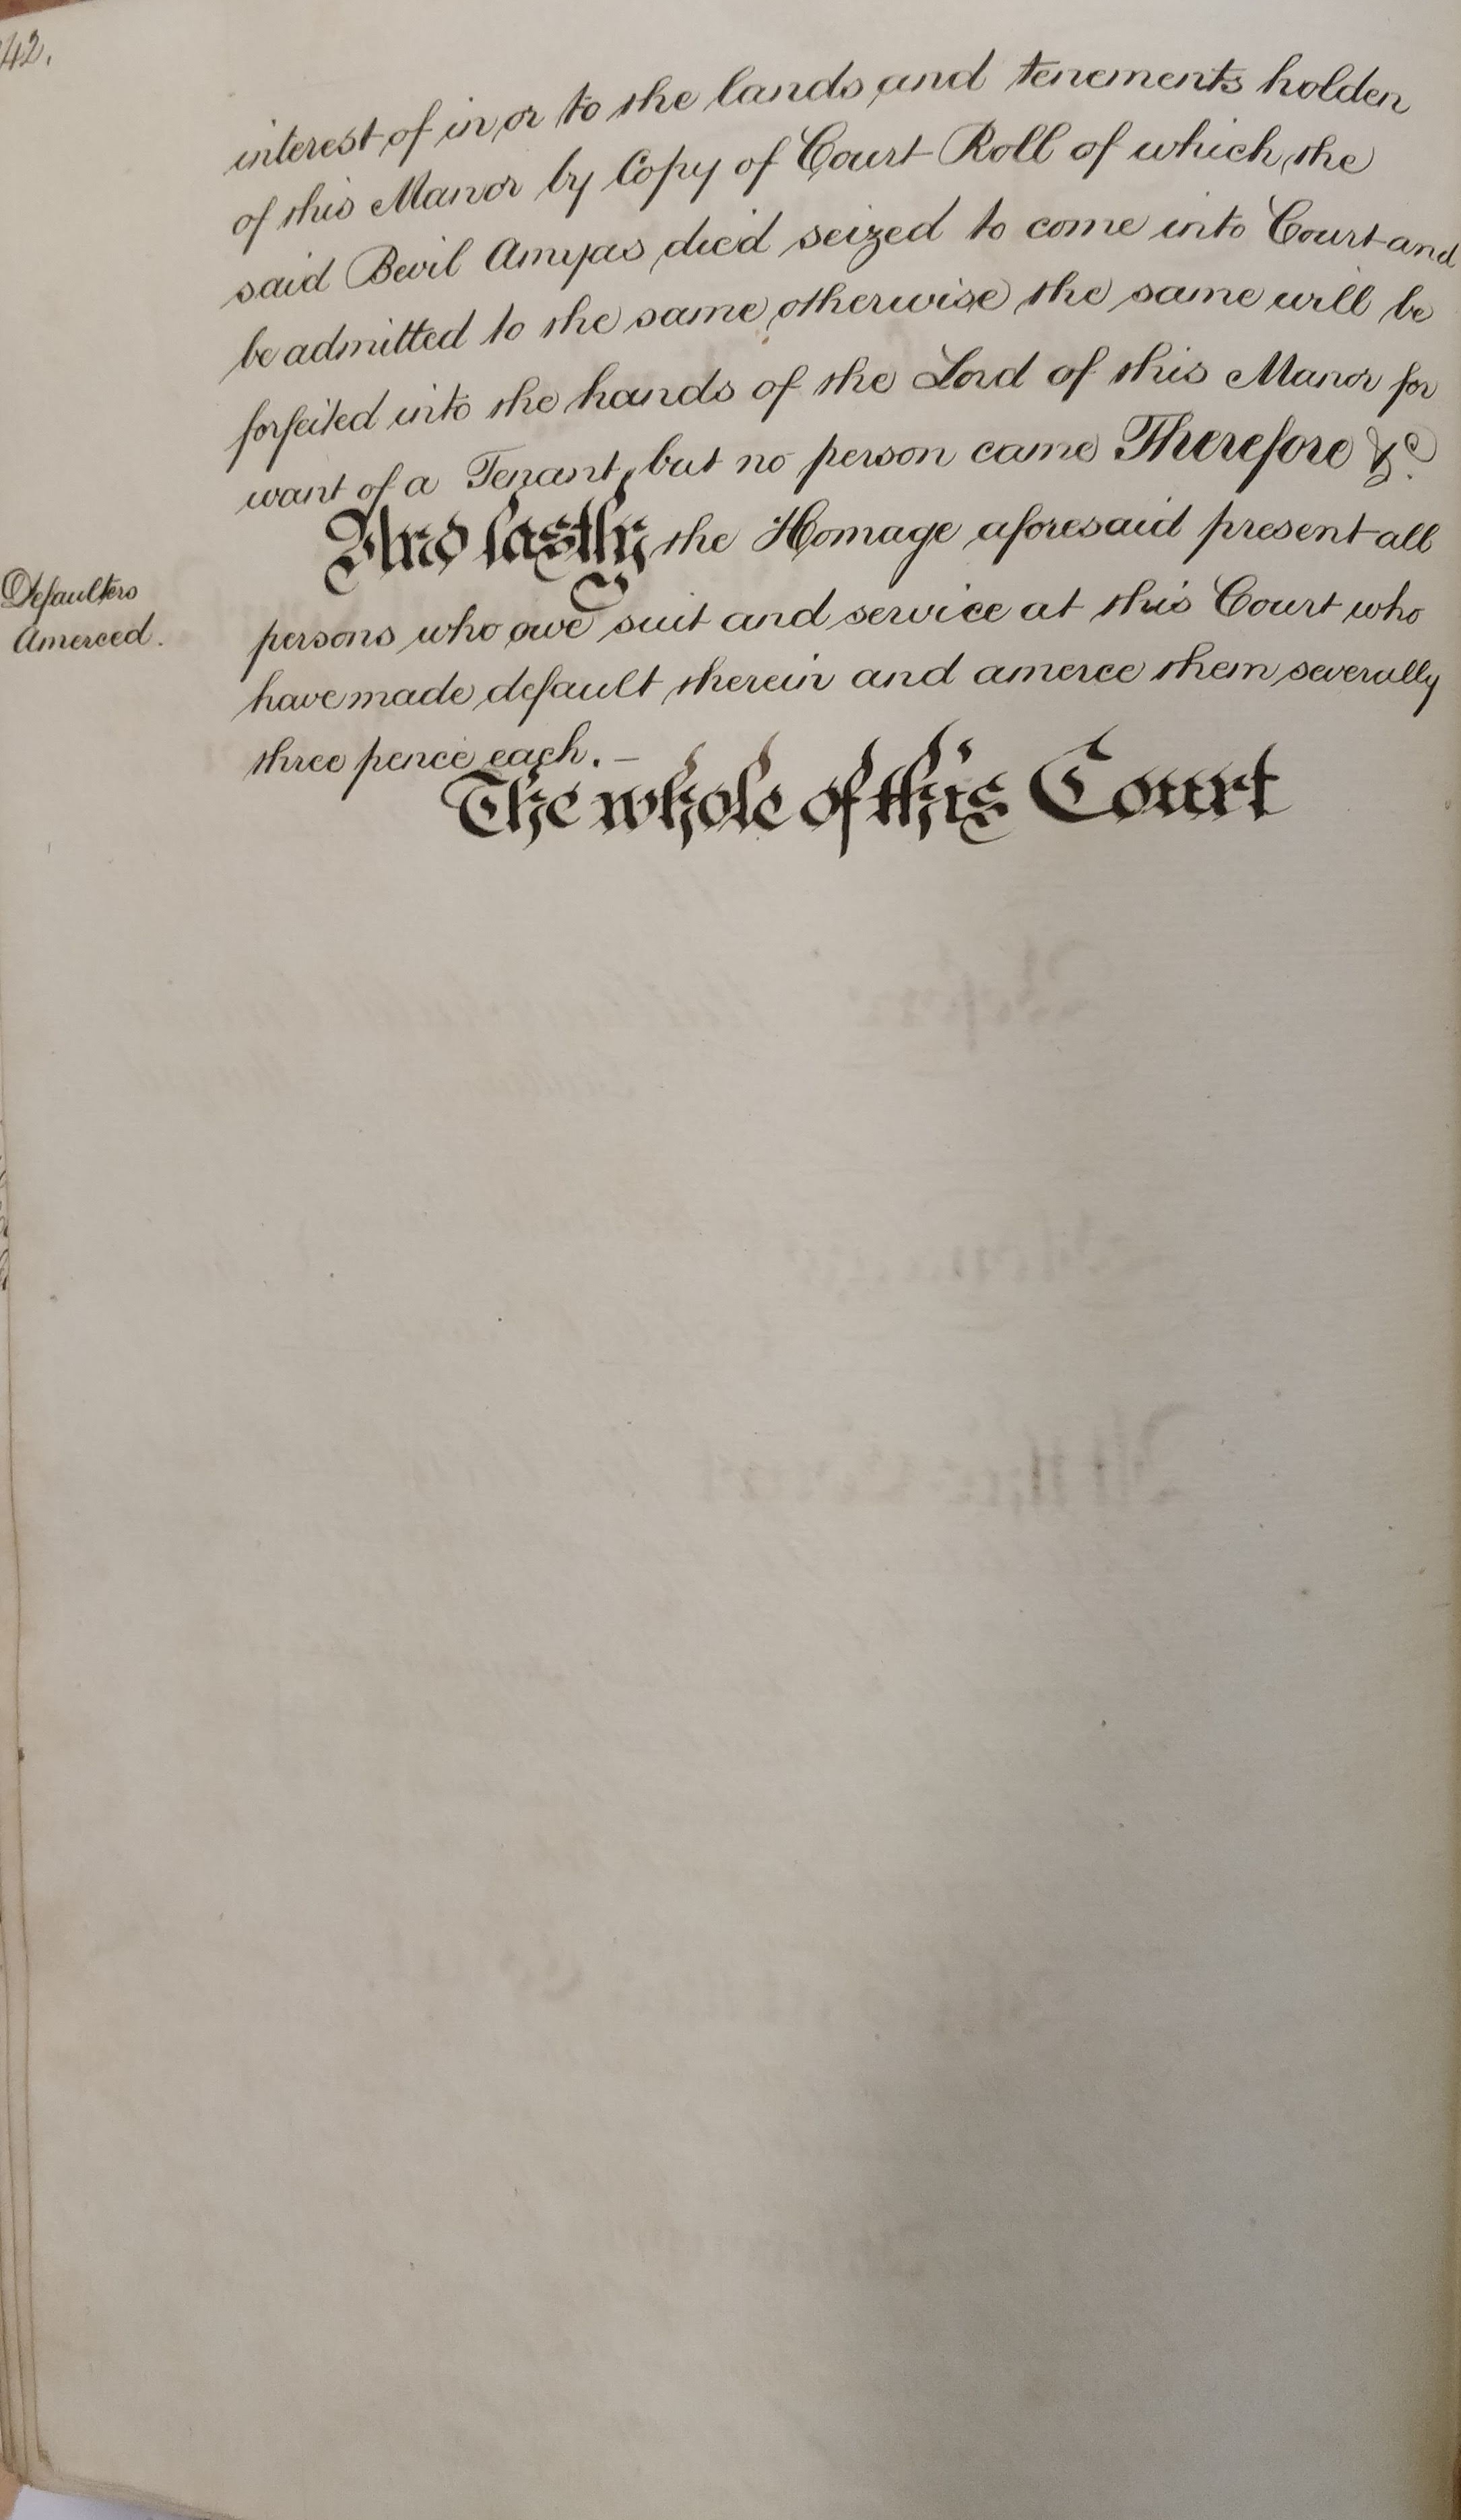 42.
interest of in or to the lands and tenements holden
of this Manor by Copy of Court Roll of which the
said Bevil Amyas died seized to come into Court and
be admitted to the same otherwise the same will be
forfeited into the hands of the Lord of this Manor for
want of a Tenant, but no person came Therefore &c.
And lastly the Homage aforesaid present all
Defaulters
Amerced.
persons who owe suit and service at this Court who
have made default therein and amerce them severally
three pence each. —
The whole of this Court